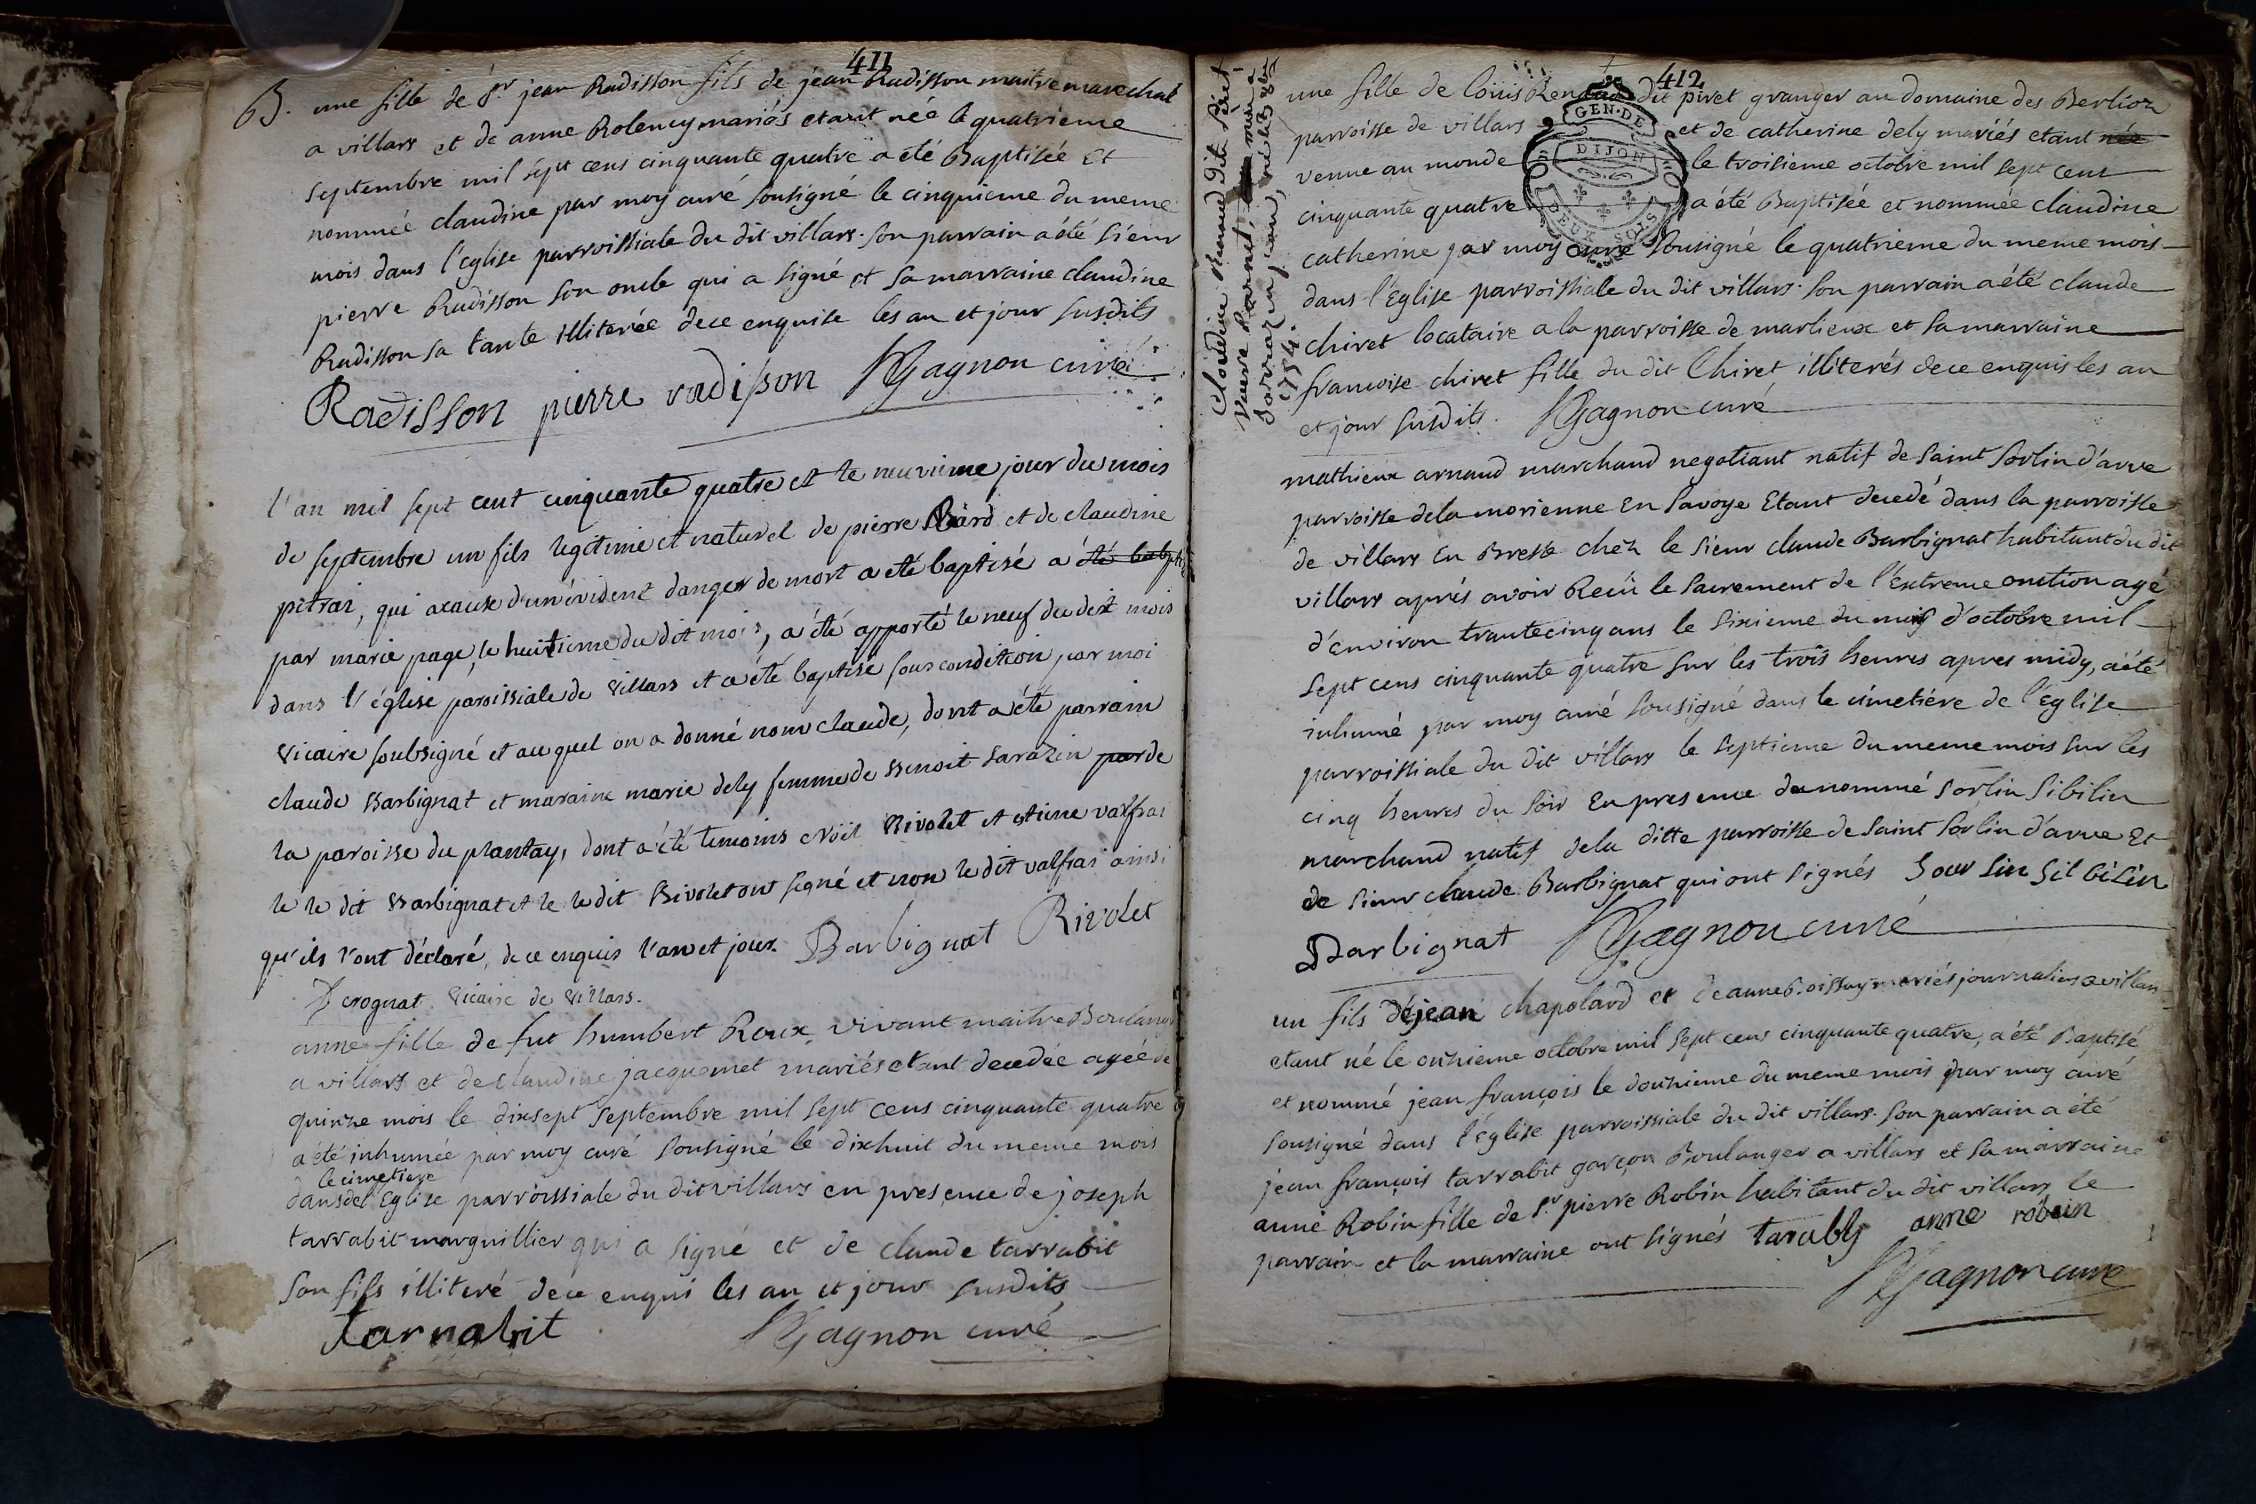 411
B. une fille de Sr jean Radisson fils de jean Radisson maitre marechal
a villars et de anne Rolency mariés etant née le quatrieme
septembre mil sept cens cinquante quatre a été Baptisée Et
nommée claudine par moy curé sousigné le cinquieme du meme
mois dans l'eglise parroissiale du dit villars. son parrain a été sieur
pierre Radisson son oncle qui a signé et sa marraine claudine
Radisson sa tante illiterée de ce enquise les an et jour susdits
Radisson pierre radisson Gagnon curé
l'an mil sept cent cinquante quatre et le neuvieme jour du mois
de septembre un fils legitime et naturel de pierre et de claudine
pitrai, qui acause d'un évident danger de mort a été baptisé a été bapti
par marie page, le huitieme du dit mois, a été apporté le neuf du dit mois
dans l'église paroissiale de villars et a été baptisé sous condition par moi
vicaire soubsigné et auquel on a donné nom claude, dont a été parrain
claude Barbignat et maraine marie dely femme de Benoit Sarazin par de
la paroisse du plantay, dont a été temoins Noël Rivolet et etiene valfrai
le le dit Barbignat et le le dit Rivolet ont signé et non le dit valfrai ainsi
qu'ils l'ont déclaré, de ce enquis l'an et jour. Barbignat Rivolet
crognat vicaire de villars.
anne fille de fut humbert Roux vivant maitre Boulanger
a villars et de claudine jacquemet mariés etant decedée ageé de
quinze mois le dixsept septembre mil sept cens cinquante quatre
a été inhumée par moy curé sousigné le dixhuit du meme mois
le cimetiere
dans de l'Eglise parroissiale du dit villars en presence de joseph
tarrabit marguillier qui a signé et de claude tarrabit
son fils illiteré de ce enqui les an et jour susdits
tarrabit Gagnon curé
412
Claudine Renaud dite Péret
1754.
une fille de loüis Renaud dit piret granger au domaine des Berlion
parroisse de villars et de catherine dely mariés etant née
venue au monde le troisieme octobre mil sept cens
cinquante quatre a été Baptisée et nommée claudine
catherine par moy curé sousigné le quatrieme du meme mois
dans l'Eglise parroissiale du dit villars. son parrain a été claude
chiret locataire a la parroisse de marlieux et sa marraine
francoise chiret fille du dit Chiret illiterés de ce enquis les an
et jour susdits. Gagnon curé
GEN. DE
DIJON
DEUX SOLS
mathieux arnaud marchand negotiant natif de saint Sorlin d'arve
parroisse de la morienne En Savoye Etant decedé dans la parroisse
de villars En Bresse chéz le sieur claude Barbignat habitant du dit
villars aprés avoir Reçû le sacrement de l'Extreme onction agé
d'environ trante cinq ans le sixieme du mois d'octobre mil
sept cens cinquante quatre sur les trois heures apres midy, a été
inhumé par moy curé sousigné dans le cimetiére de l'Eglise
parroissiale du dit villars le septieme du meme mois sur les
cinq heures du soir En presence de nommé Sorlin Sibilin
marchand natif de la ditte parroisse de saint Sorlin d'arve Et
de sieur claude Barbignat qui ont signés Sour lin sil bi lin
Barbignat Gagnon curé
un fils de jean chapolard et de anne Boissuy mariés journaliers a villars
etant né le onzieme octobre mil sept cens cinquante quatre, a été Baptisé
et nommé jean françois le douzieme du meme mois par moy curé
sousigné dans l'Eglise parroissiale du dit villars. son parrain a été
jean françois tarrabit garçon Boulanger a villars et sa marraine
anne Robin fille de Sr pierre Robin habitant du dit villars le
parrain et la marraine ont signés taraby anne robin
Gagnon curé